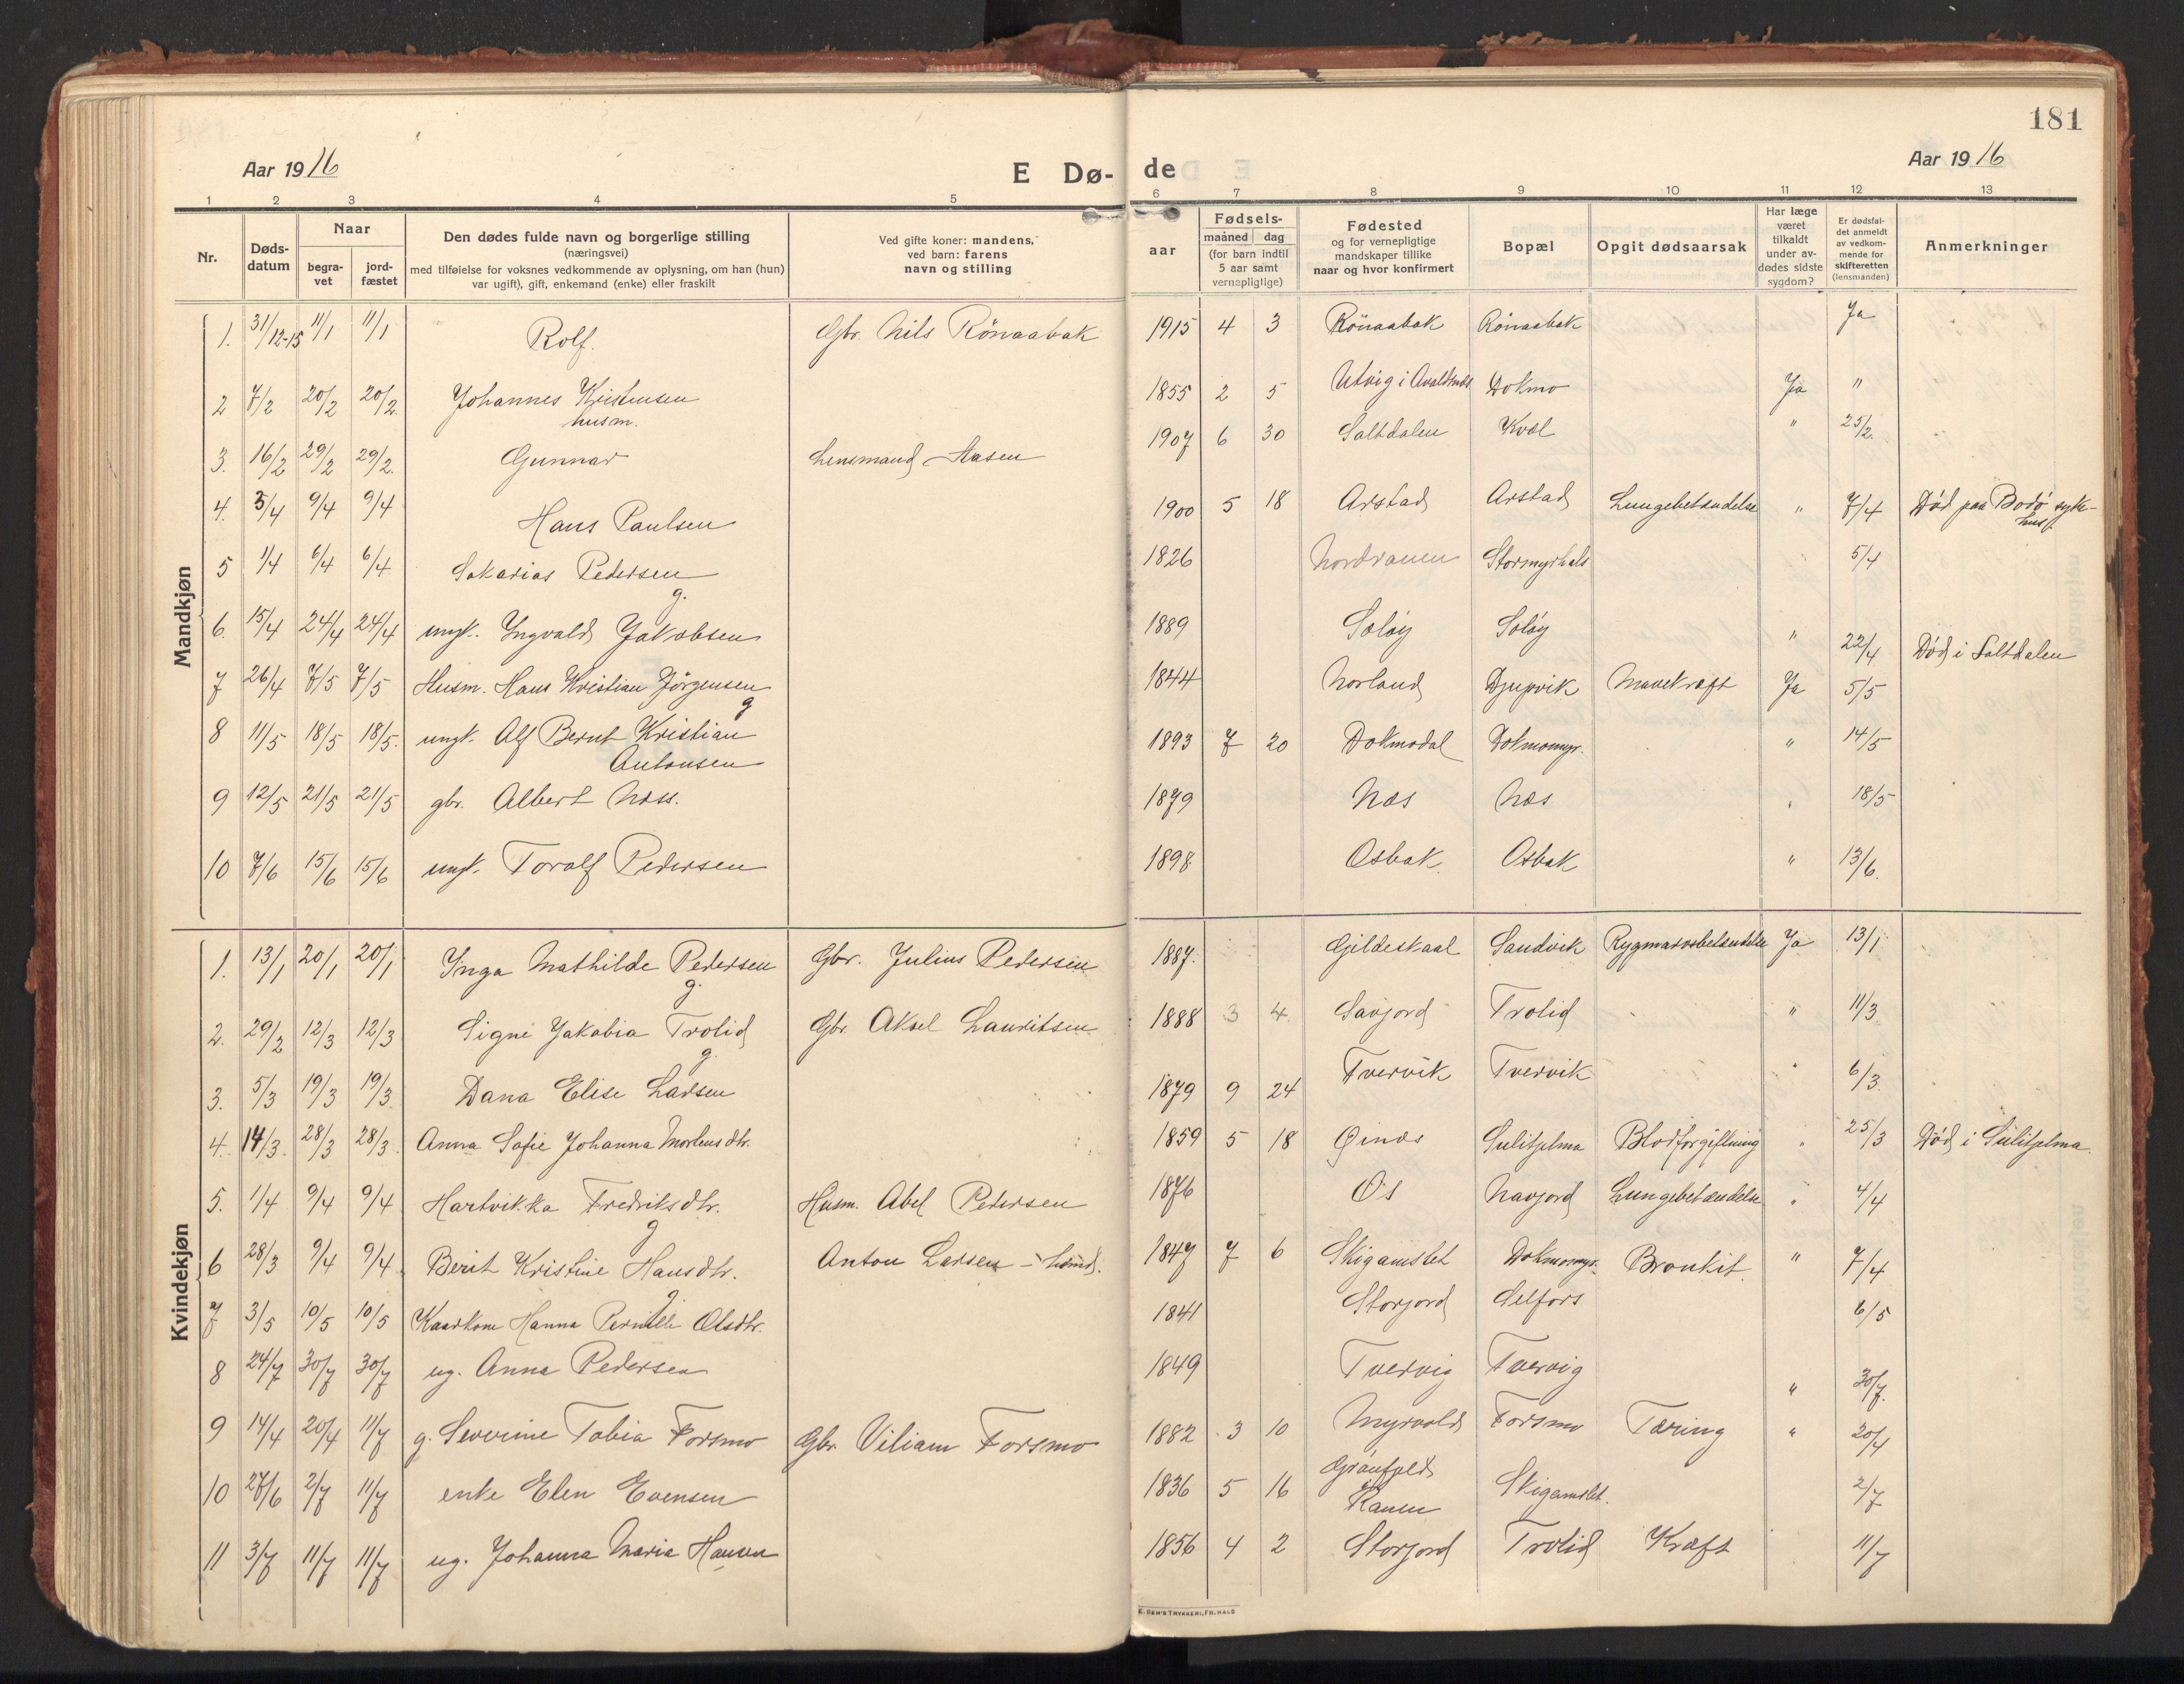 181
Aar 1916 E Dø- de Aar 1916
1 2 3 4 5 6 7 8 9 10 11 12 13
Nr. Døds-datum Naar begra-vet jord-fæstet Den dødes fulde navn og borgerlige stilling (næringsvei) med tilføielse for voksnes vedkommende av oplysning, om han (hun) var ugift), gift, enkemand (enke) eller fraskilt Ved gifte koner: mandens, ved barn: farens navn og stilling aar Fødsels- maaned dag (for barn indtil 5 aar samt vernepligtige) Fødested og for vernepligtige mandskaper tillike naar og hvor konfirmert Bopæl Opgit dødsaarsak Har læge været tilkaldt under av-dødes sidste sygdom? Er dødsfal-det anmeldt av vedkom-mende for skifteretten (lensmanden) Anmerkninger
Mandkjøn
1. 31/12-15 11/1 11/1 Rolf. Gbr. Nils Rönaabak 1915 4 3 Rönaabak Rönaabak Ja
2 7/2 20/2 20/2. Johannes Kristensen husm. 1855 2 5 Utvig i Dokmo Ja "
3. 16/2 29/2 29/2. Gunnar Lensmand Aasen 1907 6 30 Saltdalen Kval " 25/2.
4. 3/4 9/4 9/4 Hans Paulsen 1900 5 18 Arstad Arstad Lungebetændelse " 7/4 Död paa Bodö syke-hus
5 1/4 6/4 6/4 Sakarias Pedersen g. 1826 Nordranen Stormyrhals " 5/4
6. 15/4 24/4 24/4 ungk. Ingvald Jakobsen 1889 Soløy Soløy " 22/4 Död i Saltdalen
7 26/4 7/5 7/5 Husm. Hans Kristian Jörgensen g 1844 Norland Djupvik Mavekræft Ja 5/5
8 11/5 18/5 18/5. ungk. Alf Bernt Kristian Antonsen 1893 7 20 Dokmodal Dokmomyr. " 14/5
9 12/5 21/5 21/5 gbr. Albert Næss. 1879 Næs Næs " 18/5
10 7/6 15/6 15/6 ungk. Toralf Pedersen 1898 Osbak. Osbak " 13/6.
Kvindekjøn
1. 13/1 20/1 20/1 Inga Mathilde Pedersen g. Gbr. Julius Pedersen 1887. Gildeskaal Sandvik Rygmarvsbetændelse Ja 13/1
2. 29/2 12/3 12/3 Signe Jakobia Trolid g. Gbr. Aksel Lauritsen 1888 3 4 Savjord Trolid " 11/3
3. 5/3 19/3 19/3. Dana Elise Larsen 1879 9 24 Tvervik Tvervik " 6/3
4. 14/3. 28/3 28/3. Anna Sofie Johanna Mortensdtr. 1859 5 18 Øinæs Sulitjelma Blodforgiftning " 25/3 Död i Sulitjelma.
5. 1/4 9/4 9/4 Hartvikka Fredriksdtr. g Husm. Abel Pedersen 1876 Os Navjord Lungebetændelse " 4/4
6 28/3 9/4 9/4 Berit Kristine Hansdtr. g Anton Larsen 1847 7 6 Skigamslet Dokmomyr. Bronkit. " 7/4
7 3/5 10/5 10/5 Kaarkone Hanna Pernille Olsdtr. 1841 Storjord Selfors 6/5
8 24/7 30/7 30/7 ug. Anna Pedersen 1849 Tvervig Tvervig " 30/7.
9 14/4 20/4 11/7 g. Severine Tobia Forsmo Gbr. Viliam Forsmo 1882 3 10 Myrvold Forsmo Tæring " 20/4
10 27/6 2/7 11/7 enke Elen Evensen 1836 5 16 Grönfjeld i Ranen Skigamslet. 2/7
11 3/7 11/7 11/7 ug. Johanna Maria Hansen 1856 4 2 Storjord Trolid Kræft 11/7
E. SEM'S TRYKKERI, FR.HALD